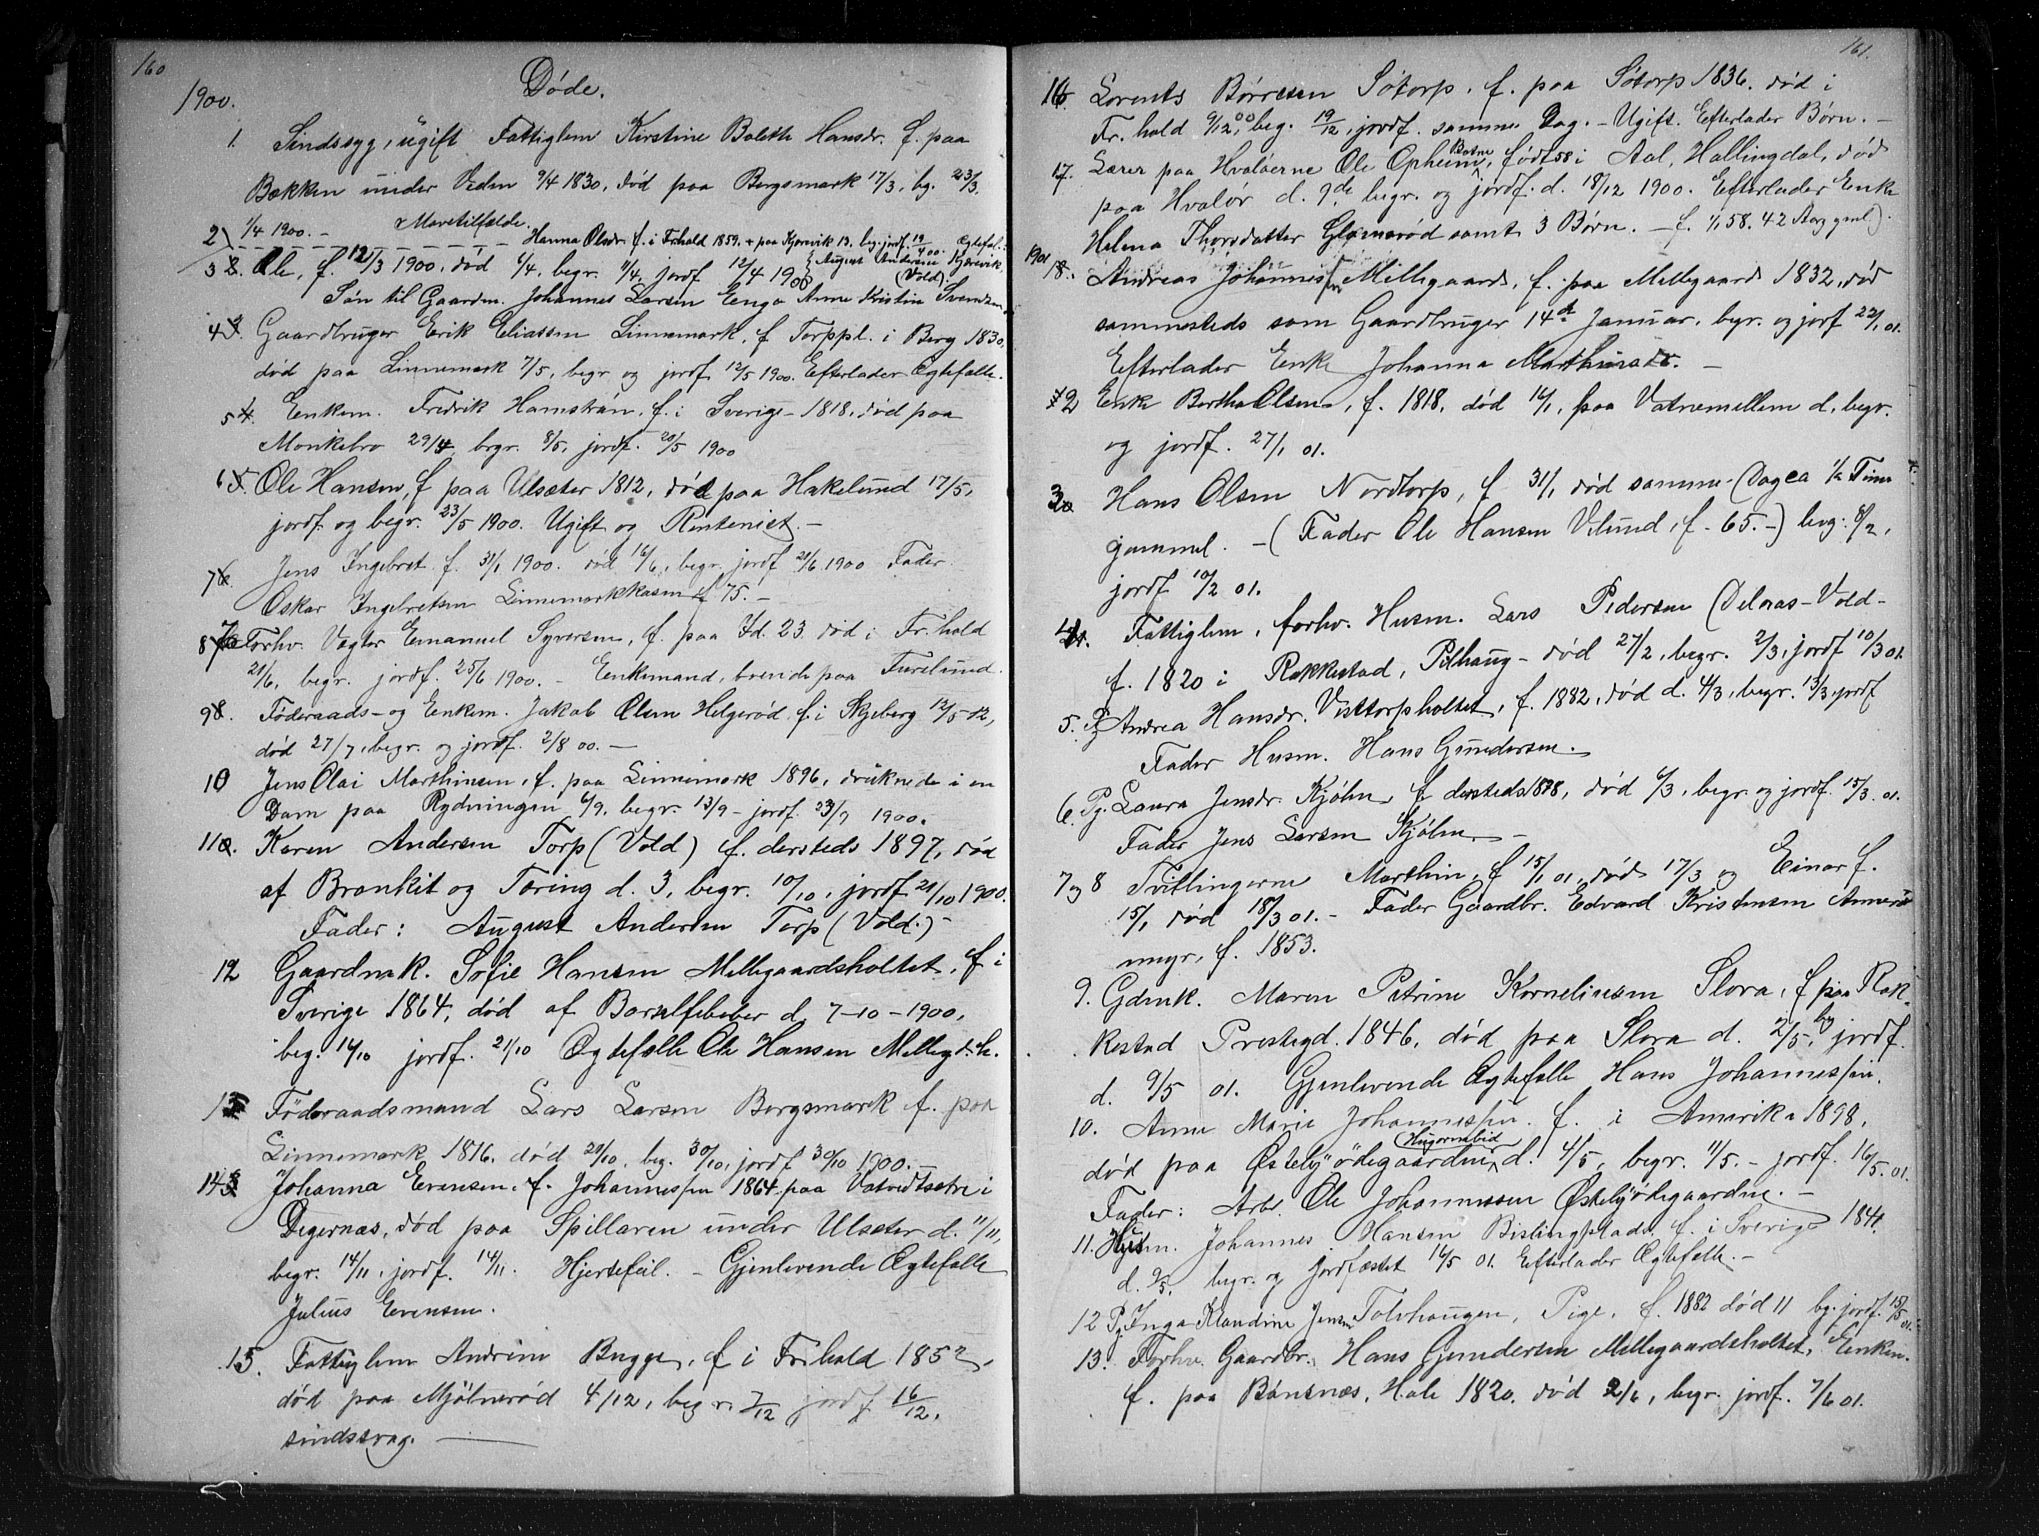 160
1900.
Døde.
1. Sindssyg, ugift Fattiglem Kirstine Bolette Hansdr. f. paa
Bækken under Veden 9/4 1830, død paa Borgsmark 17/3, bg. 23/3.
1/4 1900. - Mavetilfælde.
2 Hanna Olsdr. f. i Frhald 1859. + paa Kjørevik 13. beg. jordf. 19/4 00. Ægtefæl.
August Andersen Kjørevik
(Vold).
3 Ole, f. 12/3 1900, død 4/4, begr. 11/4, jordf 12/4 1900
Søn til Gaardm. Johannes Larsen Enga Anne Kristin Svendsen
4. Gaardbruger Erik Eliassen Linnemark, f Torppl. i Berg 1830,
død paa Linnemark 7/5, begr og jordf 12/5 1900. Efterlader Ægtefælle.
5 Enkem. Fredrik Hamstrøn, f. i Sverige - 1818, død paa
Monkebro 29/4, begr. 8/5, jordf. 20/5 1900
6. Ole Hansen, f paa Ulsæter 1812, død paa Hakelund 17/5,
jordf. og begr. 23/5 1900. Ugift og Rentenist. -
7 Jens Ingebret f. 31/1 1900. død 16/6, begr. jordf 21/6 1900 Fader
Oskar Ingebretsen Linnemarkkasen f 75. -
8 Forhv. Vægter Emanuel Syversen, f. paa Id. 23. død i Fr.hald
21/6, begr. jordf. 25/6 1900. - Enkemand, boende paa Furulund.
9. Føderaads- og Enkem. Jakob Olsen Helgerød, f. i Skjeberg 12/5 12,
død 27/7, begr. og jordf. 2/8 00. -
10 Jens Olai Marthinsen, f. paa Linnemark 1896, druknede i en
Dam paa Rydningen 6/9, begr. 13/9 - jordf. 23/9 1900.
11. Karen Andersen Torp (Vold) f. dersteds 1897, død
af Bronkit og Tæring d. 3, begr. 10/10, jordf 21/10 1900.
Fader: August Andersen Torp (Vold.) -
12 Gaardmk. Sofie Hansen Mellegaardsholtet, f i
Sverige 1864, død af Barselfeber d. 7-10-1900,
beg. 14/10 jordf. 21/10 Ægtefælle Ole Hansen Mellegd.h.
13 Føderaadsmand Lars Larsen Borgsmark f. paa
Linnemark 1816. død 21/10. beg. 30/10, jordf 30/10 1900.
14 Johanna Evensen, f. Johannessen 1864 paa Vatvedtsætre i
Degernæs, død paa Spillaren under Ulsæter d. 11/11,
begr. 14/11, jordf. 14/11. Hjertefeil. - Gjenlevende Ægtefælle
Julius Evensen.
15. Fattiglem Andrine Bugge, f i Frhald 1852,
død paa Mjølnerød 4/12, begr. 7/12 jordf 16/12,
sindssvag.
161.
16. Lorents Børresen Sötorp, f. paa Sötorp 1836. død i
Fr.hald 9/12 00, beg. 19/12, jordf. samme Dag. - Ugift. Efterlader Børn. -
17. Lærer paa Hvaløerne Ole Opheim Botne, født 58 i Aal, Hallingdal, død
paa Hvalør d. 9de begr. og jordf. d. 18/12 1900. Efterlader Enke
Helena Thorsdatter Glomsrød samt 3 Børn. - f. 1/1 58. 42 Aar gml).
1901
18. Andreas Johannessen Mellegaard, f. paa Mellegaard 1832, død
sammesteds som Gaardbruger 14de Januar, begr. og jorf 22/1 01.
Efterlader Enke Johanna Marthinsdr. -
2 Enke Berthe Olsen, f. 1818, død 14/1, paa Vatnemellem d, begr.
og jordf. 27/1 01.
3. Hans Olsen Nordtorp, f 31/1 død samme Dag ca 1/2 Time
gammel. - (Fader Ole Hansen Velund, f - 65. -) beg: 8/2,
jordf 10/2 01.
4. Fattiglem, forhv. Husm. Lars Pedersen (Delaas-Vold-
f. 1820 i Rakkestad, Pilhaug - død 27/2, begr. 2/3, jordf 10/3 01.
5. Pg Andrea Hansdr. Visttorpholtet, f. 1882, død d. 4/3, begr. 13/3, jordf
Fader Husm. Hans Gundersen.
6. Pg. Laura Jensdr. Kjølen f. dersteds 1878, død 6/3, begr. og jordf. 15/3. 01.
Fader Jens Larsen Kjølen. -
7 og 8 Tvillingerne Marthin, f 15/1 01, død 17/3 og Einar f.
15/1 død 18/3 01. - Fader Gaardbr. Edvard Kristensen
myr, f. 1853.
9. Gdmk. Maren Petrine Korneliusen Slora, f paa Rak-
kestad Prestegd. 1846, død paa Slora d. 2/5, beg jordf.
d. 9/5 01. Gjenlevende Ægtefælle Hans Johannessen.
10. Anne Marie Johannessen. f. i Amerika 1898,
død paa Østebyødegaarden, Hugormebid d. 4/5, begr. 11/5. - jordf. 16/5. 01.
Fader: Arbr. Ole Johannessen Østebyødegaarden. -
11. Husm. Johannes Hansen Bislingplads, f. i Sverige 1841.
d. 9/5, begr. og jordfæstet 16/5 01. Efterlader Ægtefælle. -
12 Pg Inga Klaudine Jensen Tolvhaugen, Pige, f. 1882 død 11 bg. jordf. 15/5 01.
13. Forhv. Gaardbr. Hans Gundersen Mellegaardsholtet, Enkem.
f. paa Bönenæs, Hole 1820, død 2/6, begr. jordf. 7/6 01.